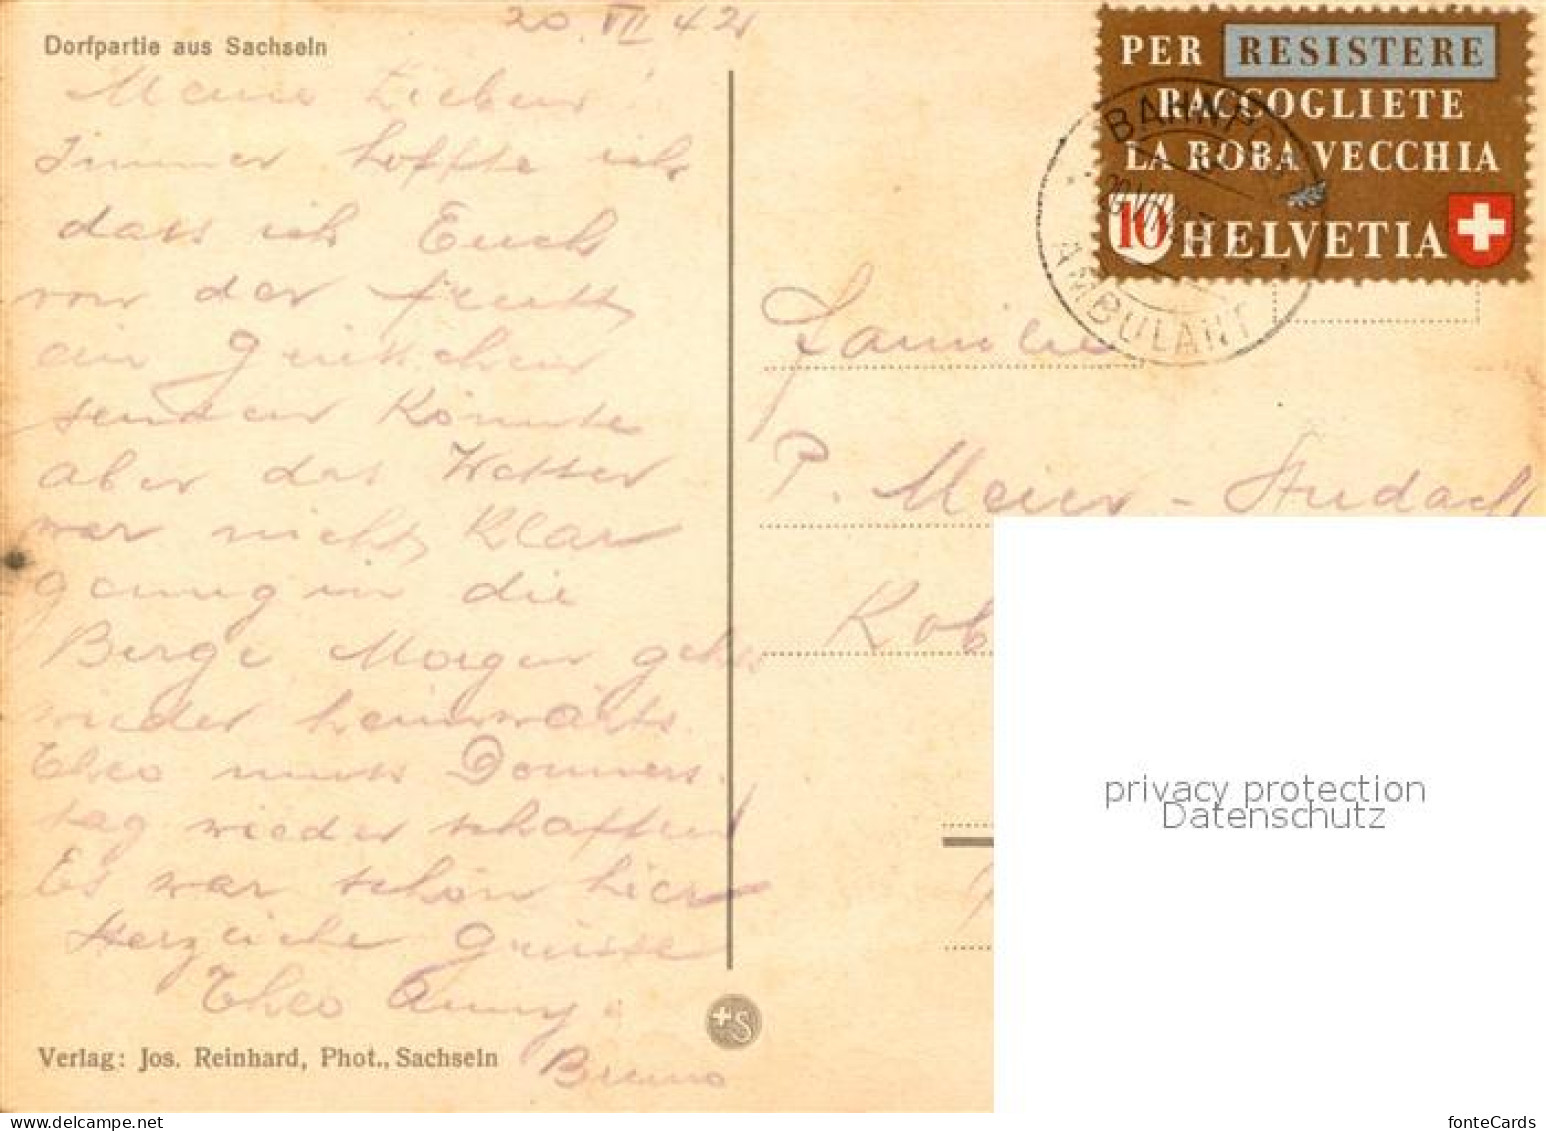 Dorfpartie aus Sachseln
20. VII 42
Meine Lieben!
Immer hoffte ich
dass ich Euch
von der Frutt
ein Grüsschen
senden könnte
aber das Wetter
war nicht klar
genug in die
Berge. Morgen geht es
wieder heimwärts.
Theo muss Donners-
tag wieder schaffen!
Es war schön hier
Herzliche Grüsse
Theo Anny
Bruno
Verlag: Jos. Reinhard, Phot., Sachseln
+S
PER RESISTERE
RACCOGLIETE
LA ROBA VECCHIA
10 HELVETIA
BAHNPOST
20.VII.42
AMBULANT
Familie
P. Meier-Studach
privacy protection
Datenschutz
fonteCards